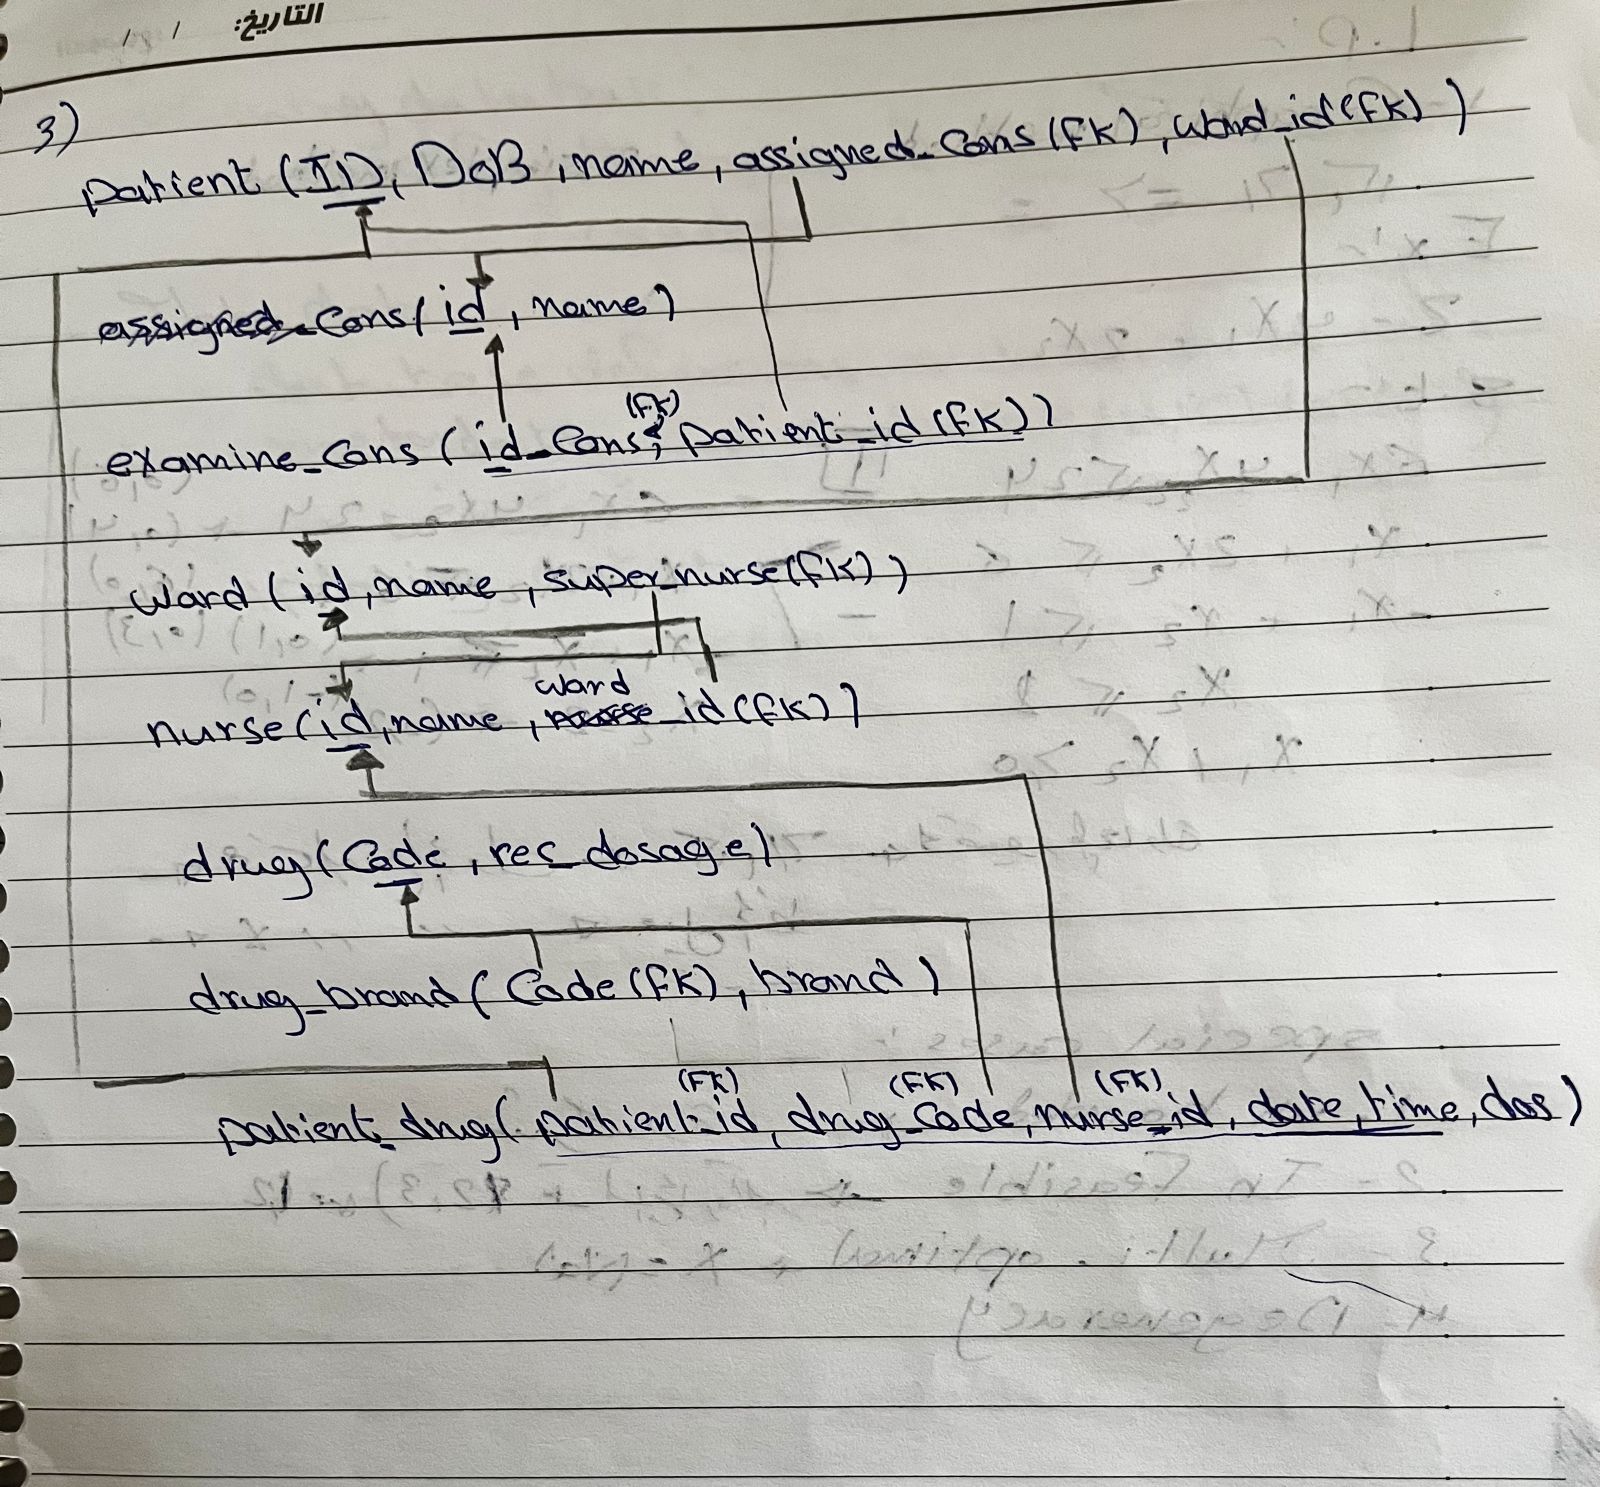 التاريخ: / /
3)
patient (ID, DoB, name, assigned_Cons (FK), ward_id (FK) )
Cons( id, name)
(FK)
examine_Cons ( id_Cons, patient_id (FK))
ward ( id, name, super_nurse(FK) )
ward
nurse(id, name, _id (FK))
drug( Code, rec_dosage)
drug_brand( Code (FK), brand )
(FK) (FK) (FK)
patient_drug( patient_id, drug_Code, nurse_id, date, time, dos)